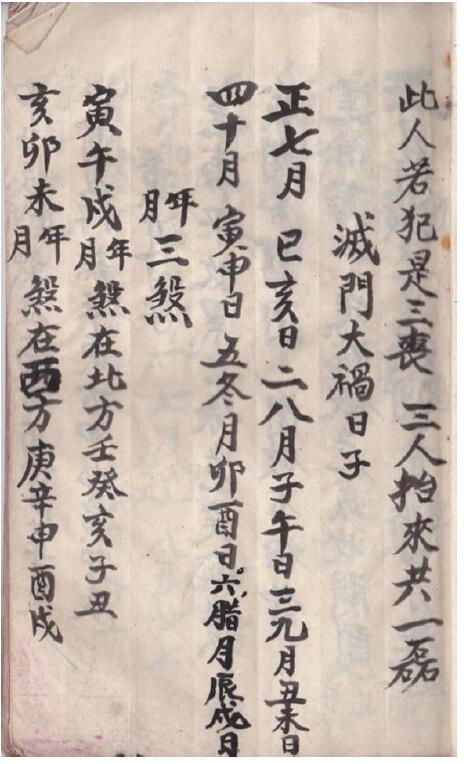 此人若犯是三喪 三人抬來共一磊
滅門大禍日子
正七月 巳亥日 二八月子午日 三九月丑未日
四十月 寅申日 五冬月卯酉日。六腊月辰戌日
年月三煞
寅午戌年月煞在北方壬癸亥子丑
亥卯未年月煞在西方庚辛申酉戌